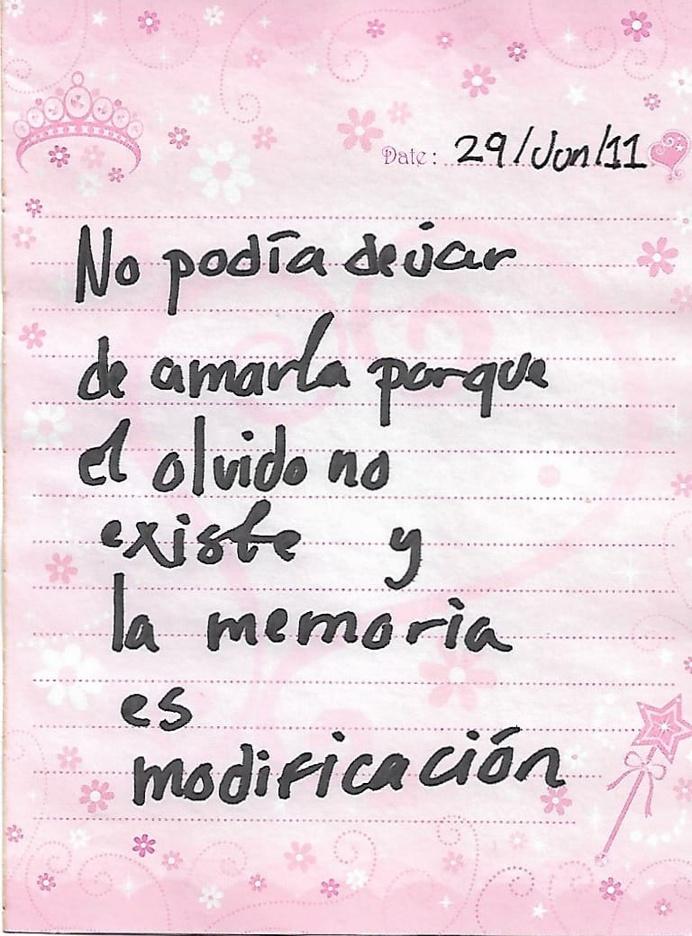 Date: 29/Jun/11
No podía dejar
de amarla porque
el olvido no
existe y
la memoria
es
modificación